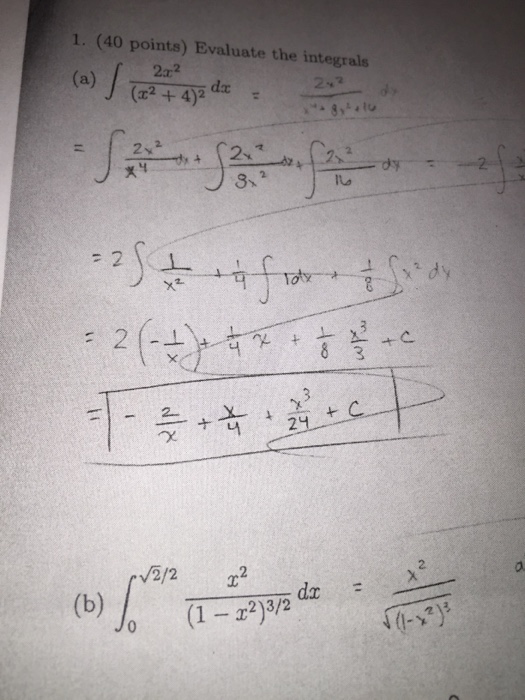 1. (40 points) Evaluate the integrals
(a) ∫ 2x²/(x² + 4)² dx = 2x²/(x⁴ + 8x² + 16) dx
= ∫ 2x²/x⁴ dx + ∫ 2x²/8x² dx + ∫ 2x²/16 dx = -2 ∫
= 2 ∫ 1/x² + 1/4 ∫ 1dx + 1/8 ∫ x² dx
= 2(-1/x) + 1/4 x + 1/8 x³/3 + C
= - 2/x + x/4 + x³/24 + C
(b) ∫₀^(√2/2) x²/(1 − x²)^(3/2) dx = x²/√(1-x²)³